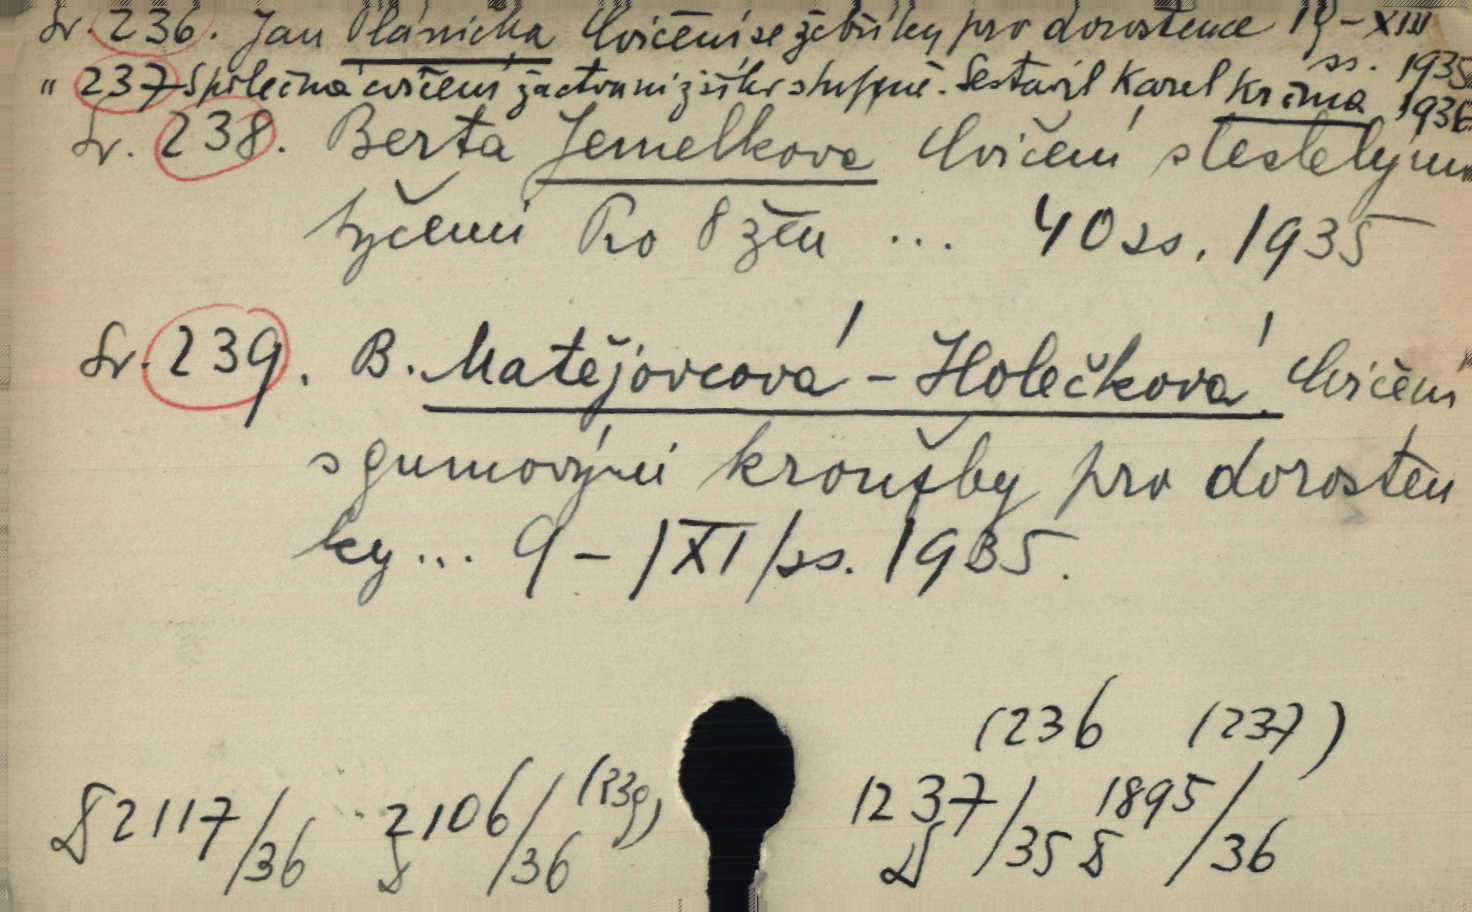 Sv. 236. Jan Plánička Cvičení se žebříky pro dorostence 19 - XIII
ss. 1935
" 237 Společná cvičení žactva nižšího stupně. Sestavil Karel Krčma 1936
Sv. 238. Berta Jemelkova Cvičení s lesklým
tyčemi Pro 8 žen ... 40 ss. 1935
Sv. 239. B. Matějovcová - Holečková. Cvičení
s gumovými kroužky pro dorosten
ky ... 9 - /XI/ss. 1935.
(236 (237)
2117/36 2106/36 (239) 1237/35 1895/36